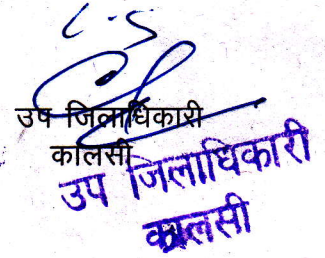 उप जिलाधिकारी
कालसी
उप जिलाधिकारी
कालसी